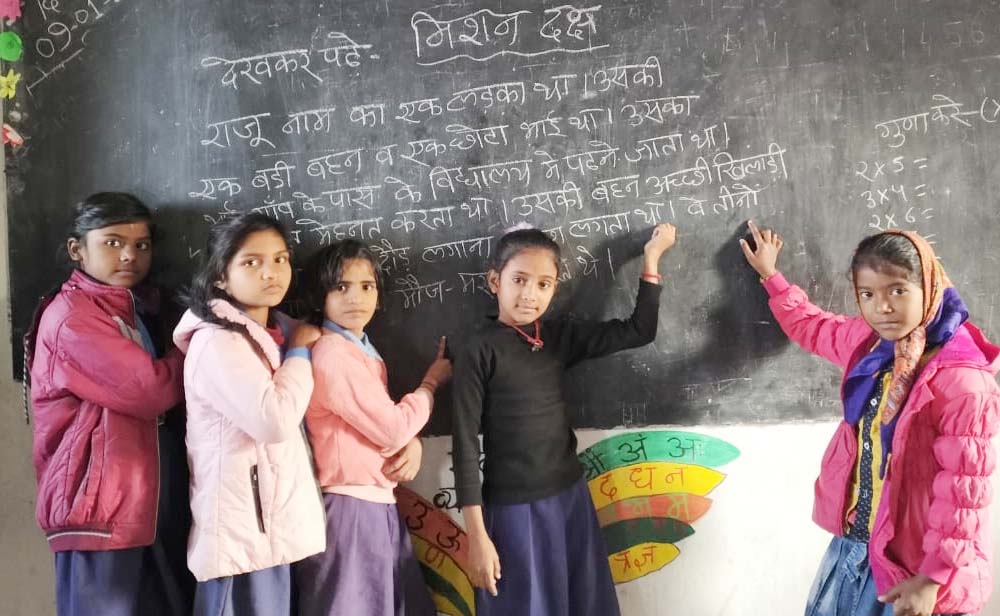 09.01
मिशन दक्ष
देखकर पढे-
राजू नाम का एक लड़का था। उसकी
एक बड़ी बहन व एक छोटा भाई था। उसका
भाई गाँव के पास के विद्यालय मे पढ़ने जाता था।
मेहनत करता था। उसकी बहन अच्छी खिलाड़ी
दौड़ लगाना लगता था। वे तीनों
मौज- थे।
गुणा करे-
2×5=
3×4=
2×6=
अं आः
द ध न
म
त्र ज्ञ
उ ऊ
ण